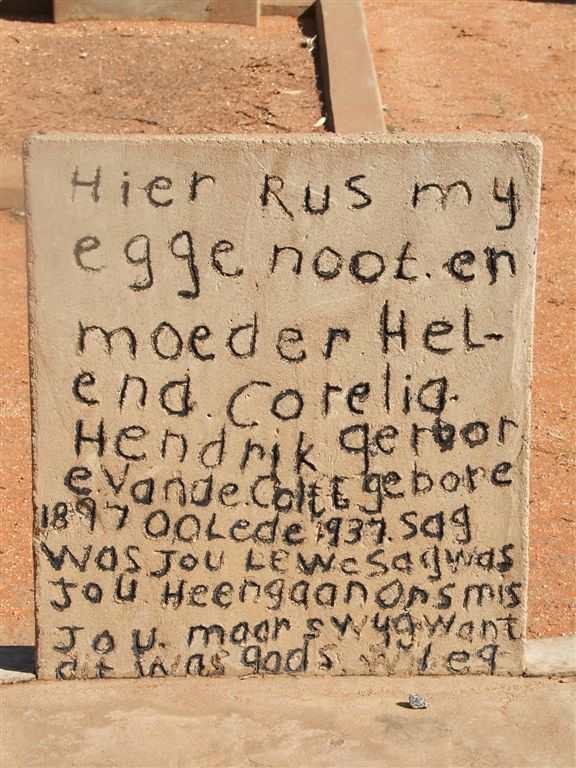 Hier RUS my
eggenoot. en
moeder Hel-
ena. Corelia.
Hendrik gerbor
e. Vande. Coltt gebore
1897 OOLede 1937. Sag
was Jou Lewe sag was
Jou Heengaan Ons mis
Jou. maar swyg want
dit was gods. wleg